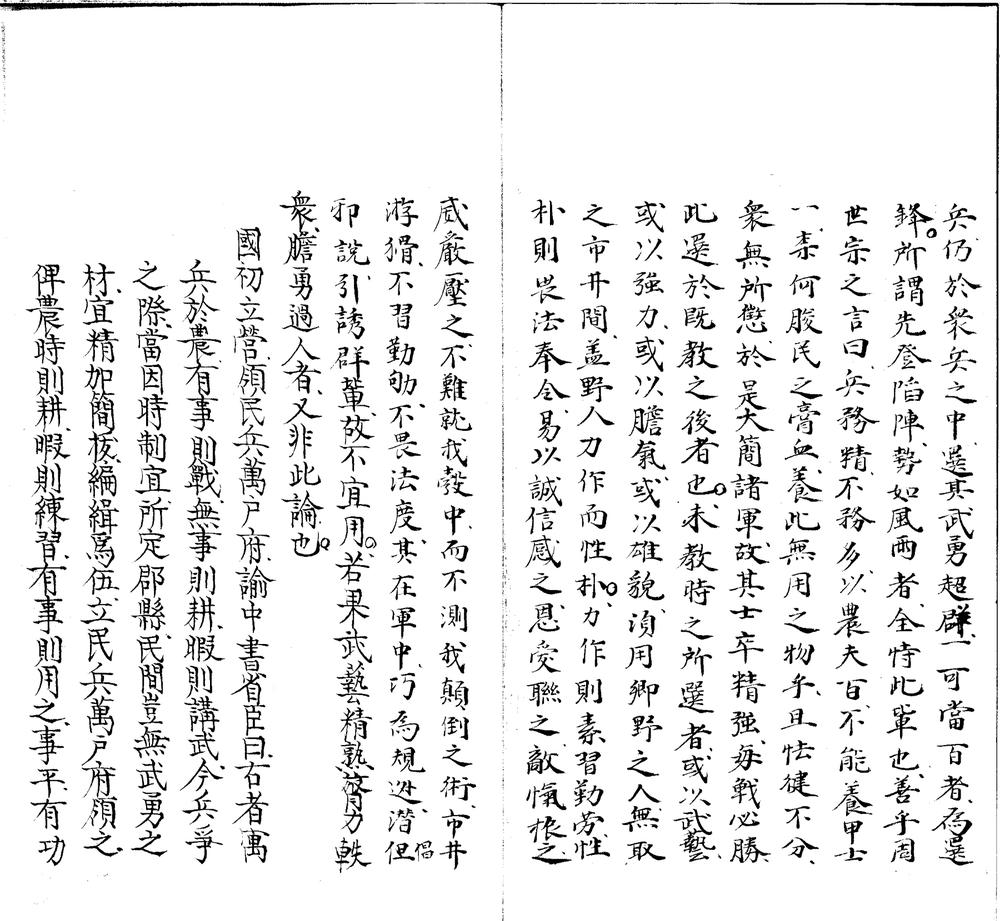 兵仍於衆兵之中選其武勇超群一可當百者為選
鋒所謂先登陷陣勢如風雨者全恃此輩也善乎周
世宗之言曰兵務精不務多以農夫百不能養甲士
一柰何朘民之膏血養此無用之物乎且怯健不分
衆無所懲於是大簡諸軍故其士卒精強每戰必勝
此選於既教之後者也未教時之所選者或以武藝
或以強力或以膽氣或以雄貌湏用鄉野之人無取
之市井間盖野人力作而性朴力作則素習勤劳性
朴則畏法奉令易以誠信感之恩愛聯之敵愾根之
威嚴壓之不難就我彀中而不測我顛倒之術市井
游猾不習勤劬不畏法度其在軍中巧為規避潛但倡
邪說引誘群輩故不宜用若果武藝精熟膂力軼
衆膽勇過人者又非此論也
國初立營領民兵萬户府諭中書省臣曰古者寓
兵於農有事則戰無事則耕暇則講武今兵爭
之際當因時制宜所定郡縣民間豈無武勇之
材宜精加簡核編緝為伍立民兵萬户府領之
俾農時則耕暇則練習有事則用之事平有功